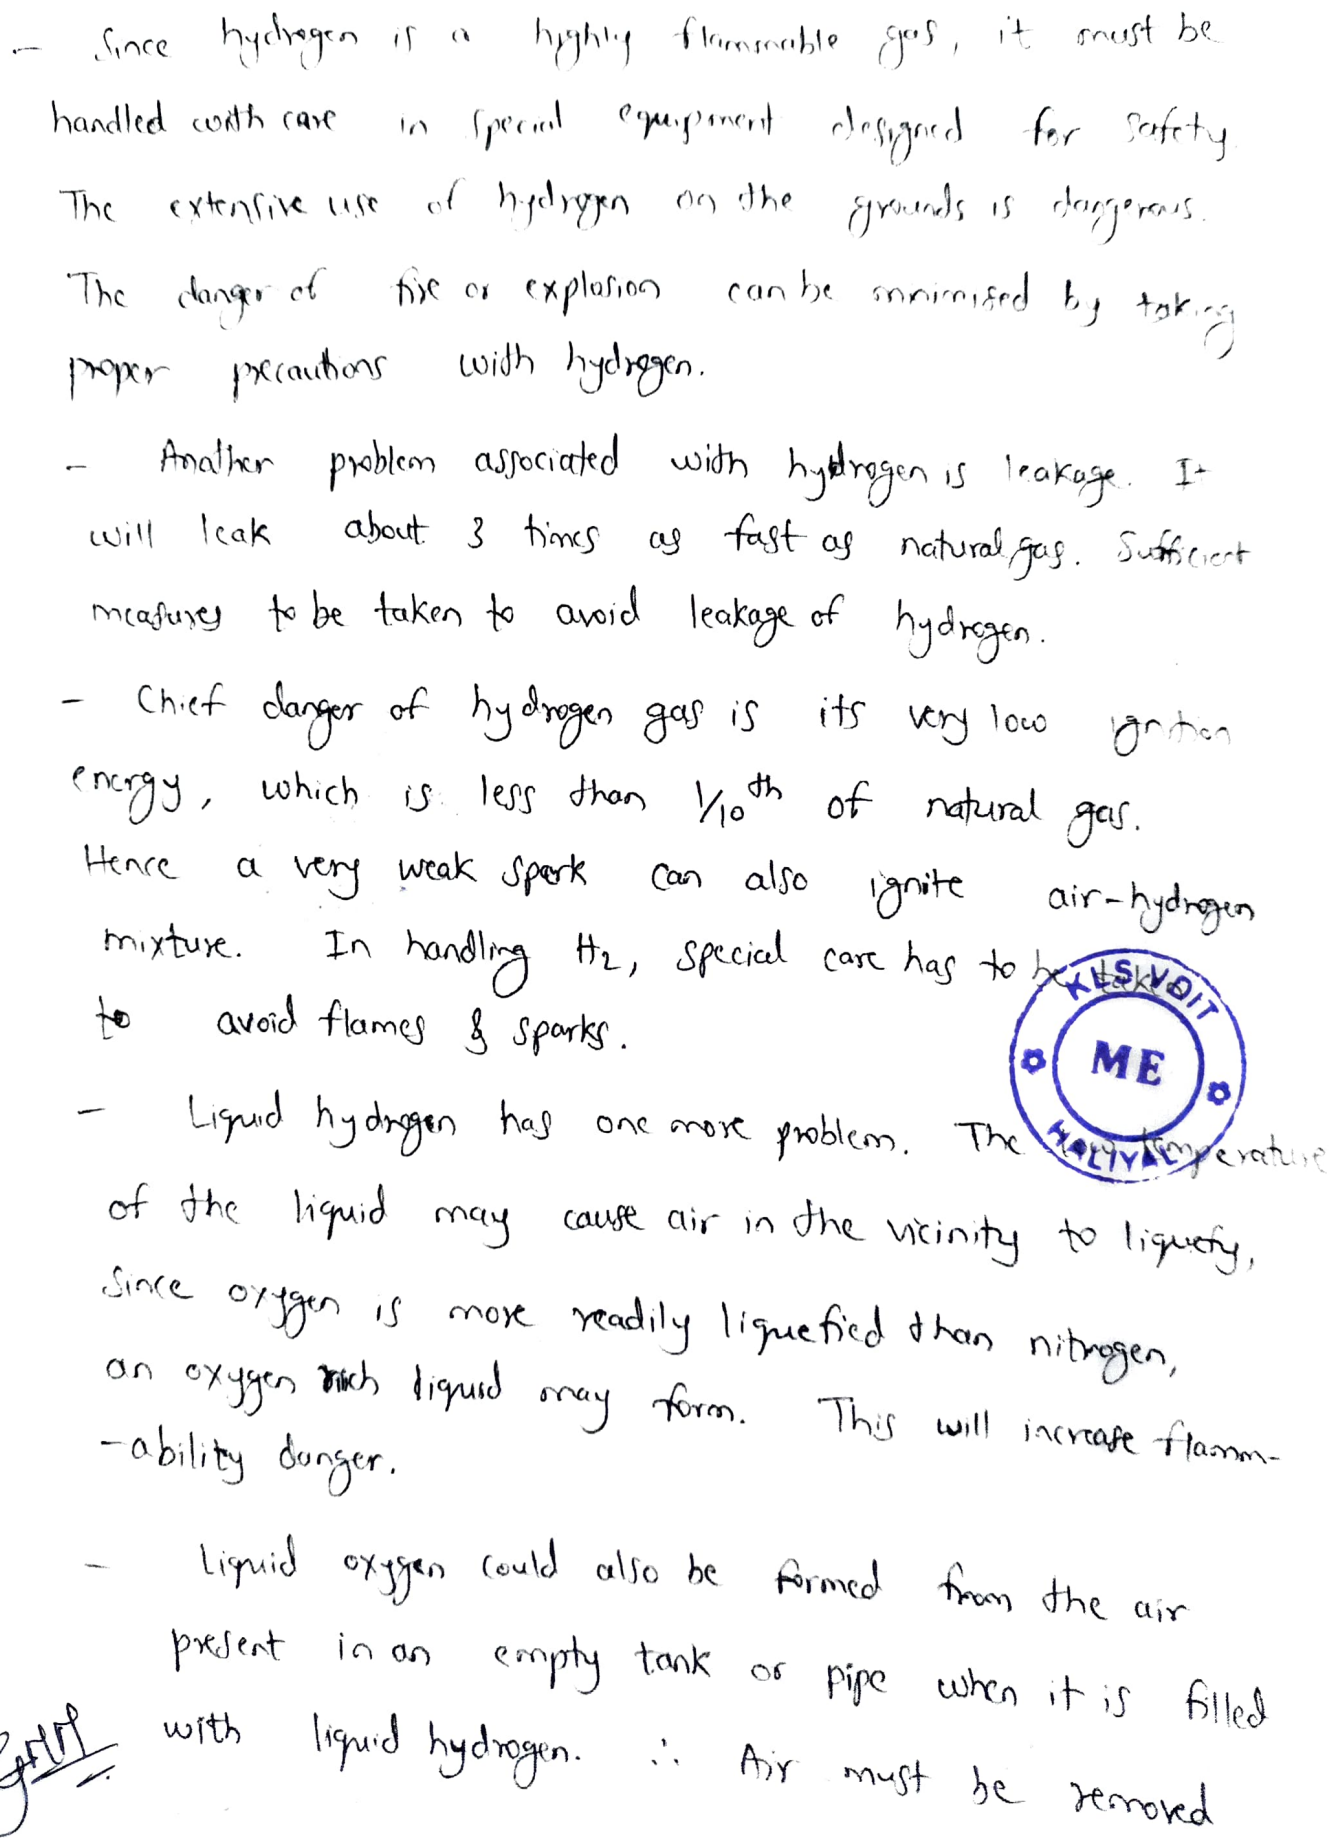 - Since hydrogen is a highly flammable gas, it must be
handled with care in special equipment designed for safety.
The extensive use of hydrogen on the grounds is dangerous.
The danger of fire or explosion can be minimised by taking
proper precautions with hydrogen.
- Another problem associated with hydrogen is leakage. It
will leak about 3 times as fast as natural gas. Sufficient
measures to be taken to avoid leakage of hydrogen.
- Chief danger of hydrogen gas is its very low ignition
energy, which is less than 1/10th of natural gas.
Hence a very weak spark can also ignite air-hydrogen
mixture. In handling H2, special care has to be taken
to avoid flames & sparks.
KLS VDIT
ME
HALIYAL
- Liquid hydrogen has one more problem. The low temperature
of the liquid may cause air in the vicinity to liquefy,
Since oxygen is more readily liquefied than nitrogen,
an oxygen rich liquid may form. This will increase flamm-
-ability danger.
- Liquid oxygen could also be formed from the air
present in an empty tank or pipe when it is filled
with liquid hydrogen. ∴ Air must be removed